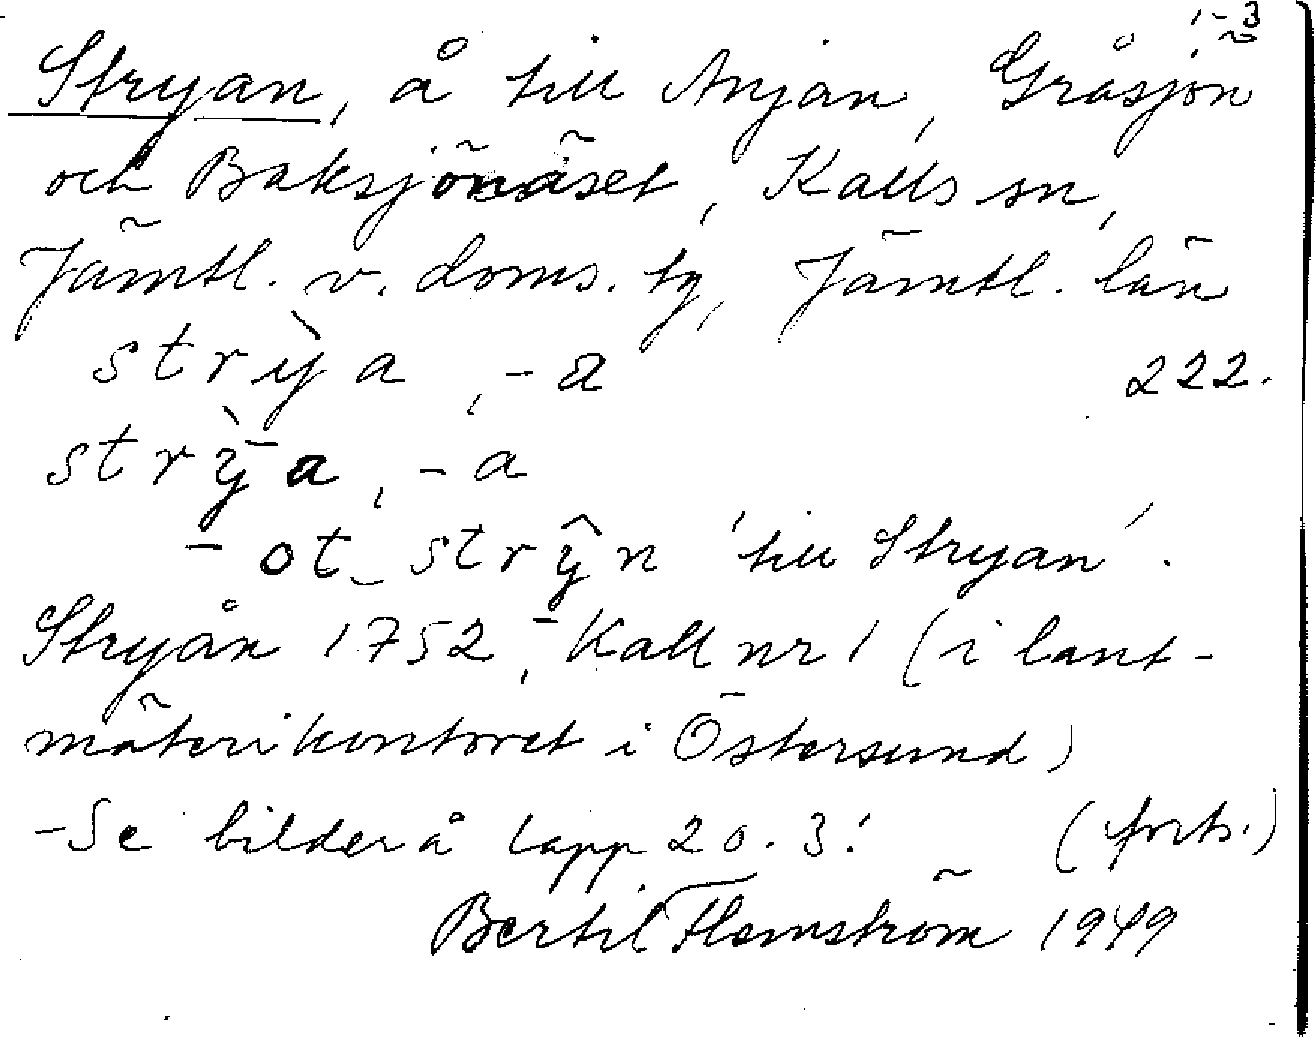 1-3
Stryan, å till Anjan, Gråsjön
och Baksjönäset, Kalls sn,
Jämtl. v. doms. tg, Jämtl. län
strỳa, -a 222.
strȳ̀a, -a
- ot_strŷn 'till Stryan'.
Stryån 1752, Kall nr 1 (i lant-
mäterikontoret i Östersund)
-Se bilder å lapp 2 o. 3! (forts.)
Bertil Flemström 1949